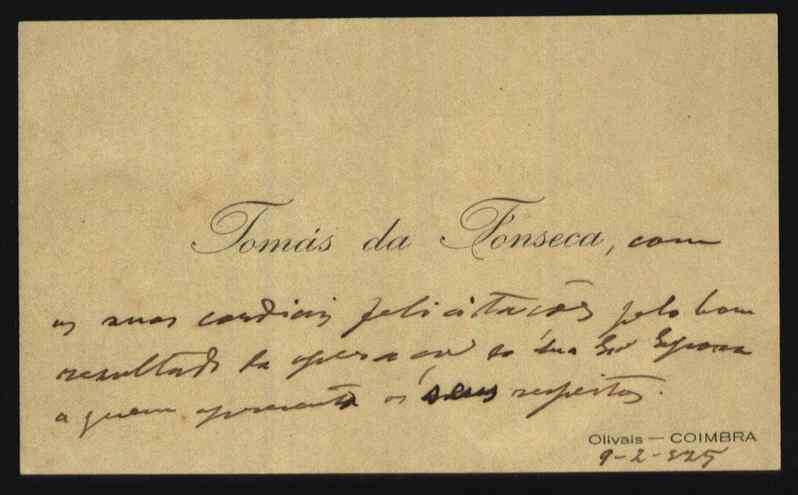 Tomás da Fonseca, com
as suas cordiais felicitações pelo bom
resultado da operação da sua Exª Esposa
a quem apresenta os seus respeitos.
Olivais — COIMBRA
9-2-925